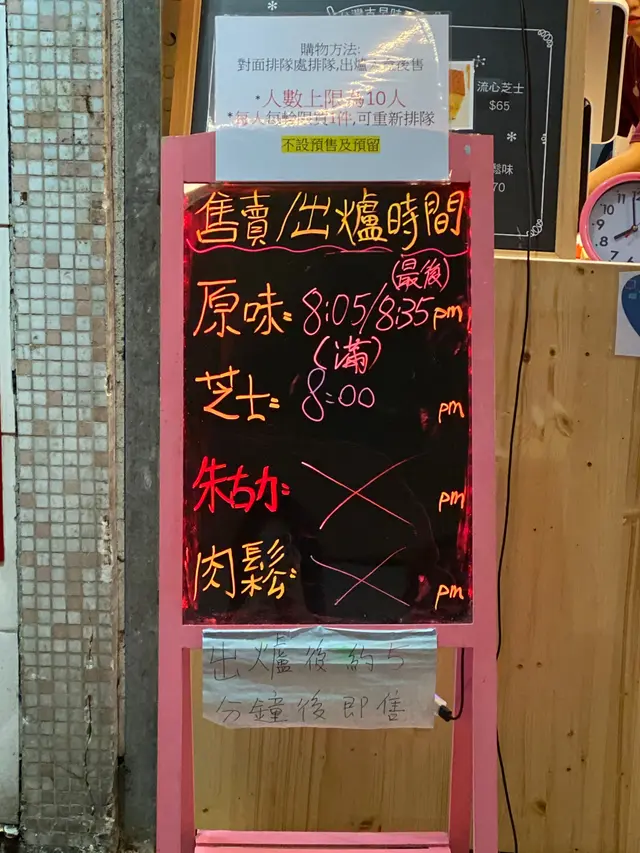 台灣古早味
購物方法:
對面排隊處排隊,出爐後售
*人數上限為10人
*每人每輪限買1件,可重新排隊
不設預售及預留
流心芝士
$65
鬆味
70
售賣/出爐時間
(最後)
原味: 8:05/8:35pm
(滿)
芝士: 8:00 pm
朱古力: pm
肉鬆: pm
出爐後約5
分鐘後即售
10
11
12
9
8
7
6